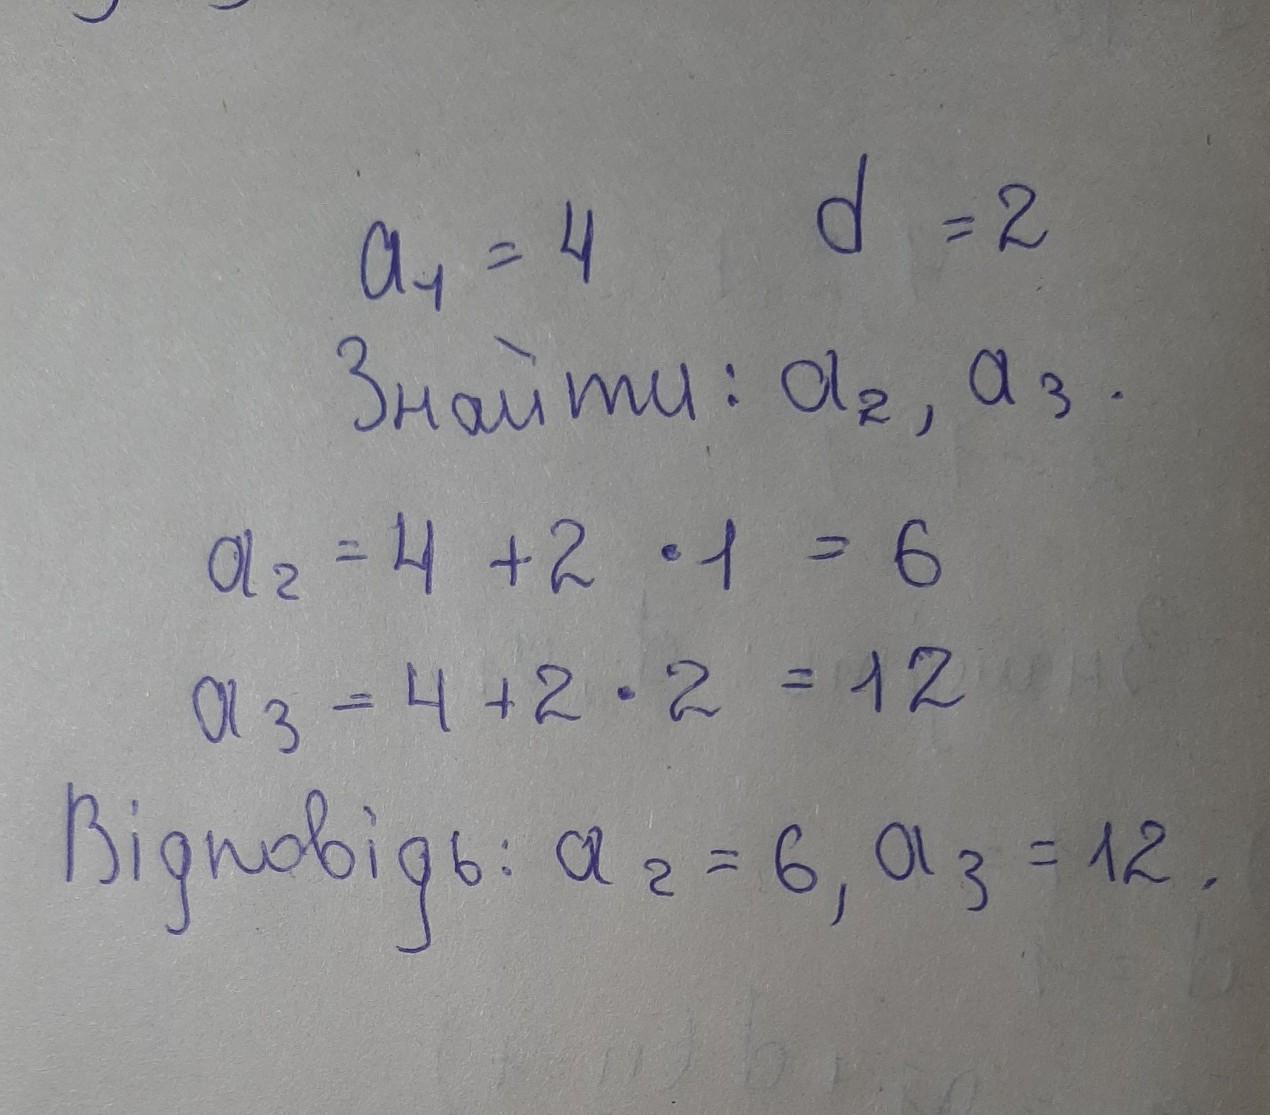 a₁ = 4 d = 2
Знайти: a₂, a₃.
a₂ = 4 + 2 · 1 = 6
a₃ = 4 + 2 · 2 = 12
Відповідь: a₂ = 6, a₃ = 12.